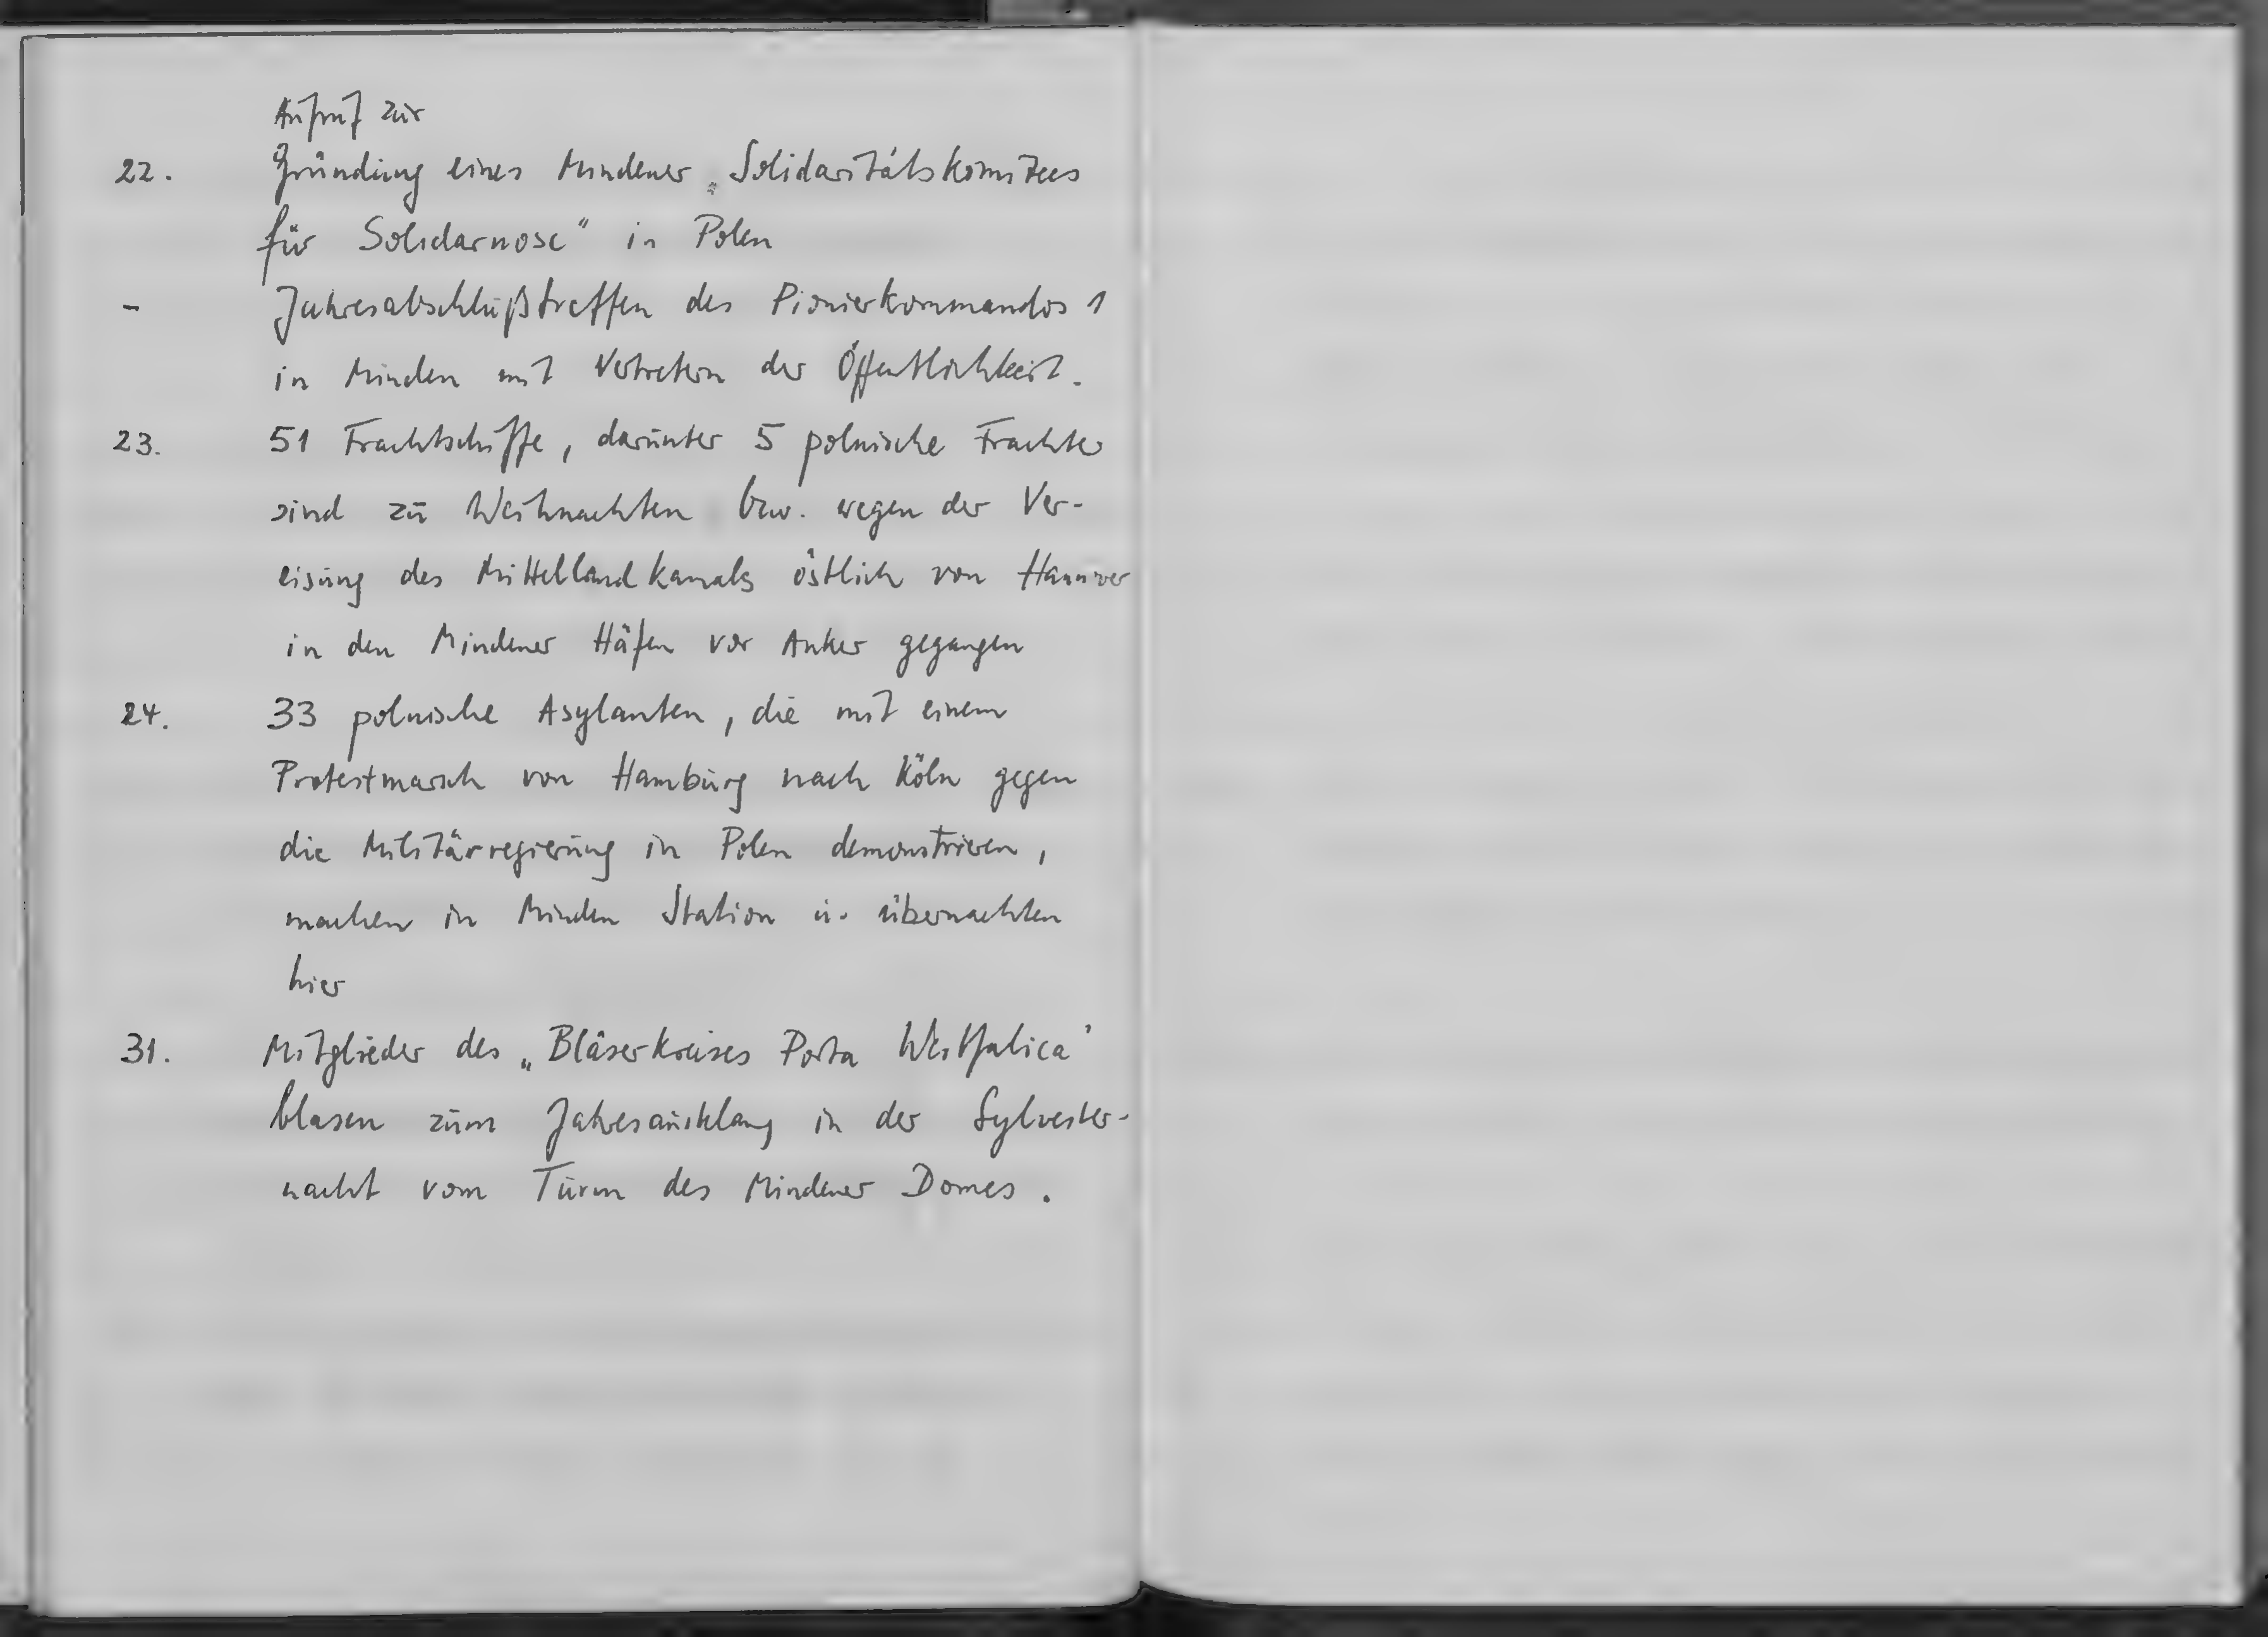 Aufruf zur
22. Gründung eines Mindener „Solidaritätskomitees
für Solidarnosc" in Polen
- Jahresabschlußtreffen des Pionierkommandos 1
in Minden mit Vertretern der Öffentlichkeit.
23. 51 Frachtschiffe, darunter 5 polnische Frachter
sind zu Weihnachten bzw. wegen der Ver-
eisung des Mittellandkanals östlich von Hannover
in den Mindener Häfen vor Anker gegangen
24. 33 polnische Asylanten, die mit einem
Protestmarsch von Hamburg nach Köln gegen
die Militärregierung in Polen demonstrieren,
machen in Minden Station u. übernachten
hier
31. Mitglieder des „Bläserkreises Porta Westfalica"
blasen zum Jahresausklang in der Sylvester-
nacht vom Turm des Mindener Domes.